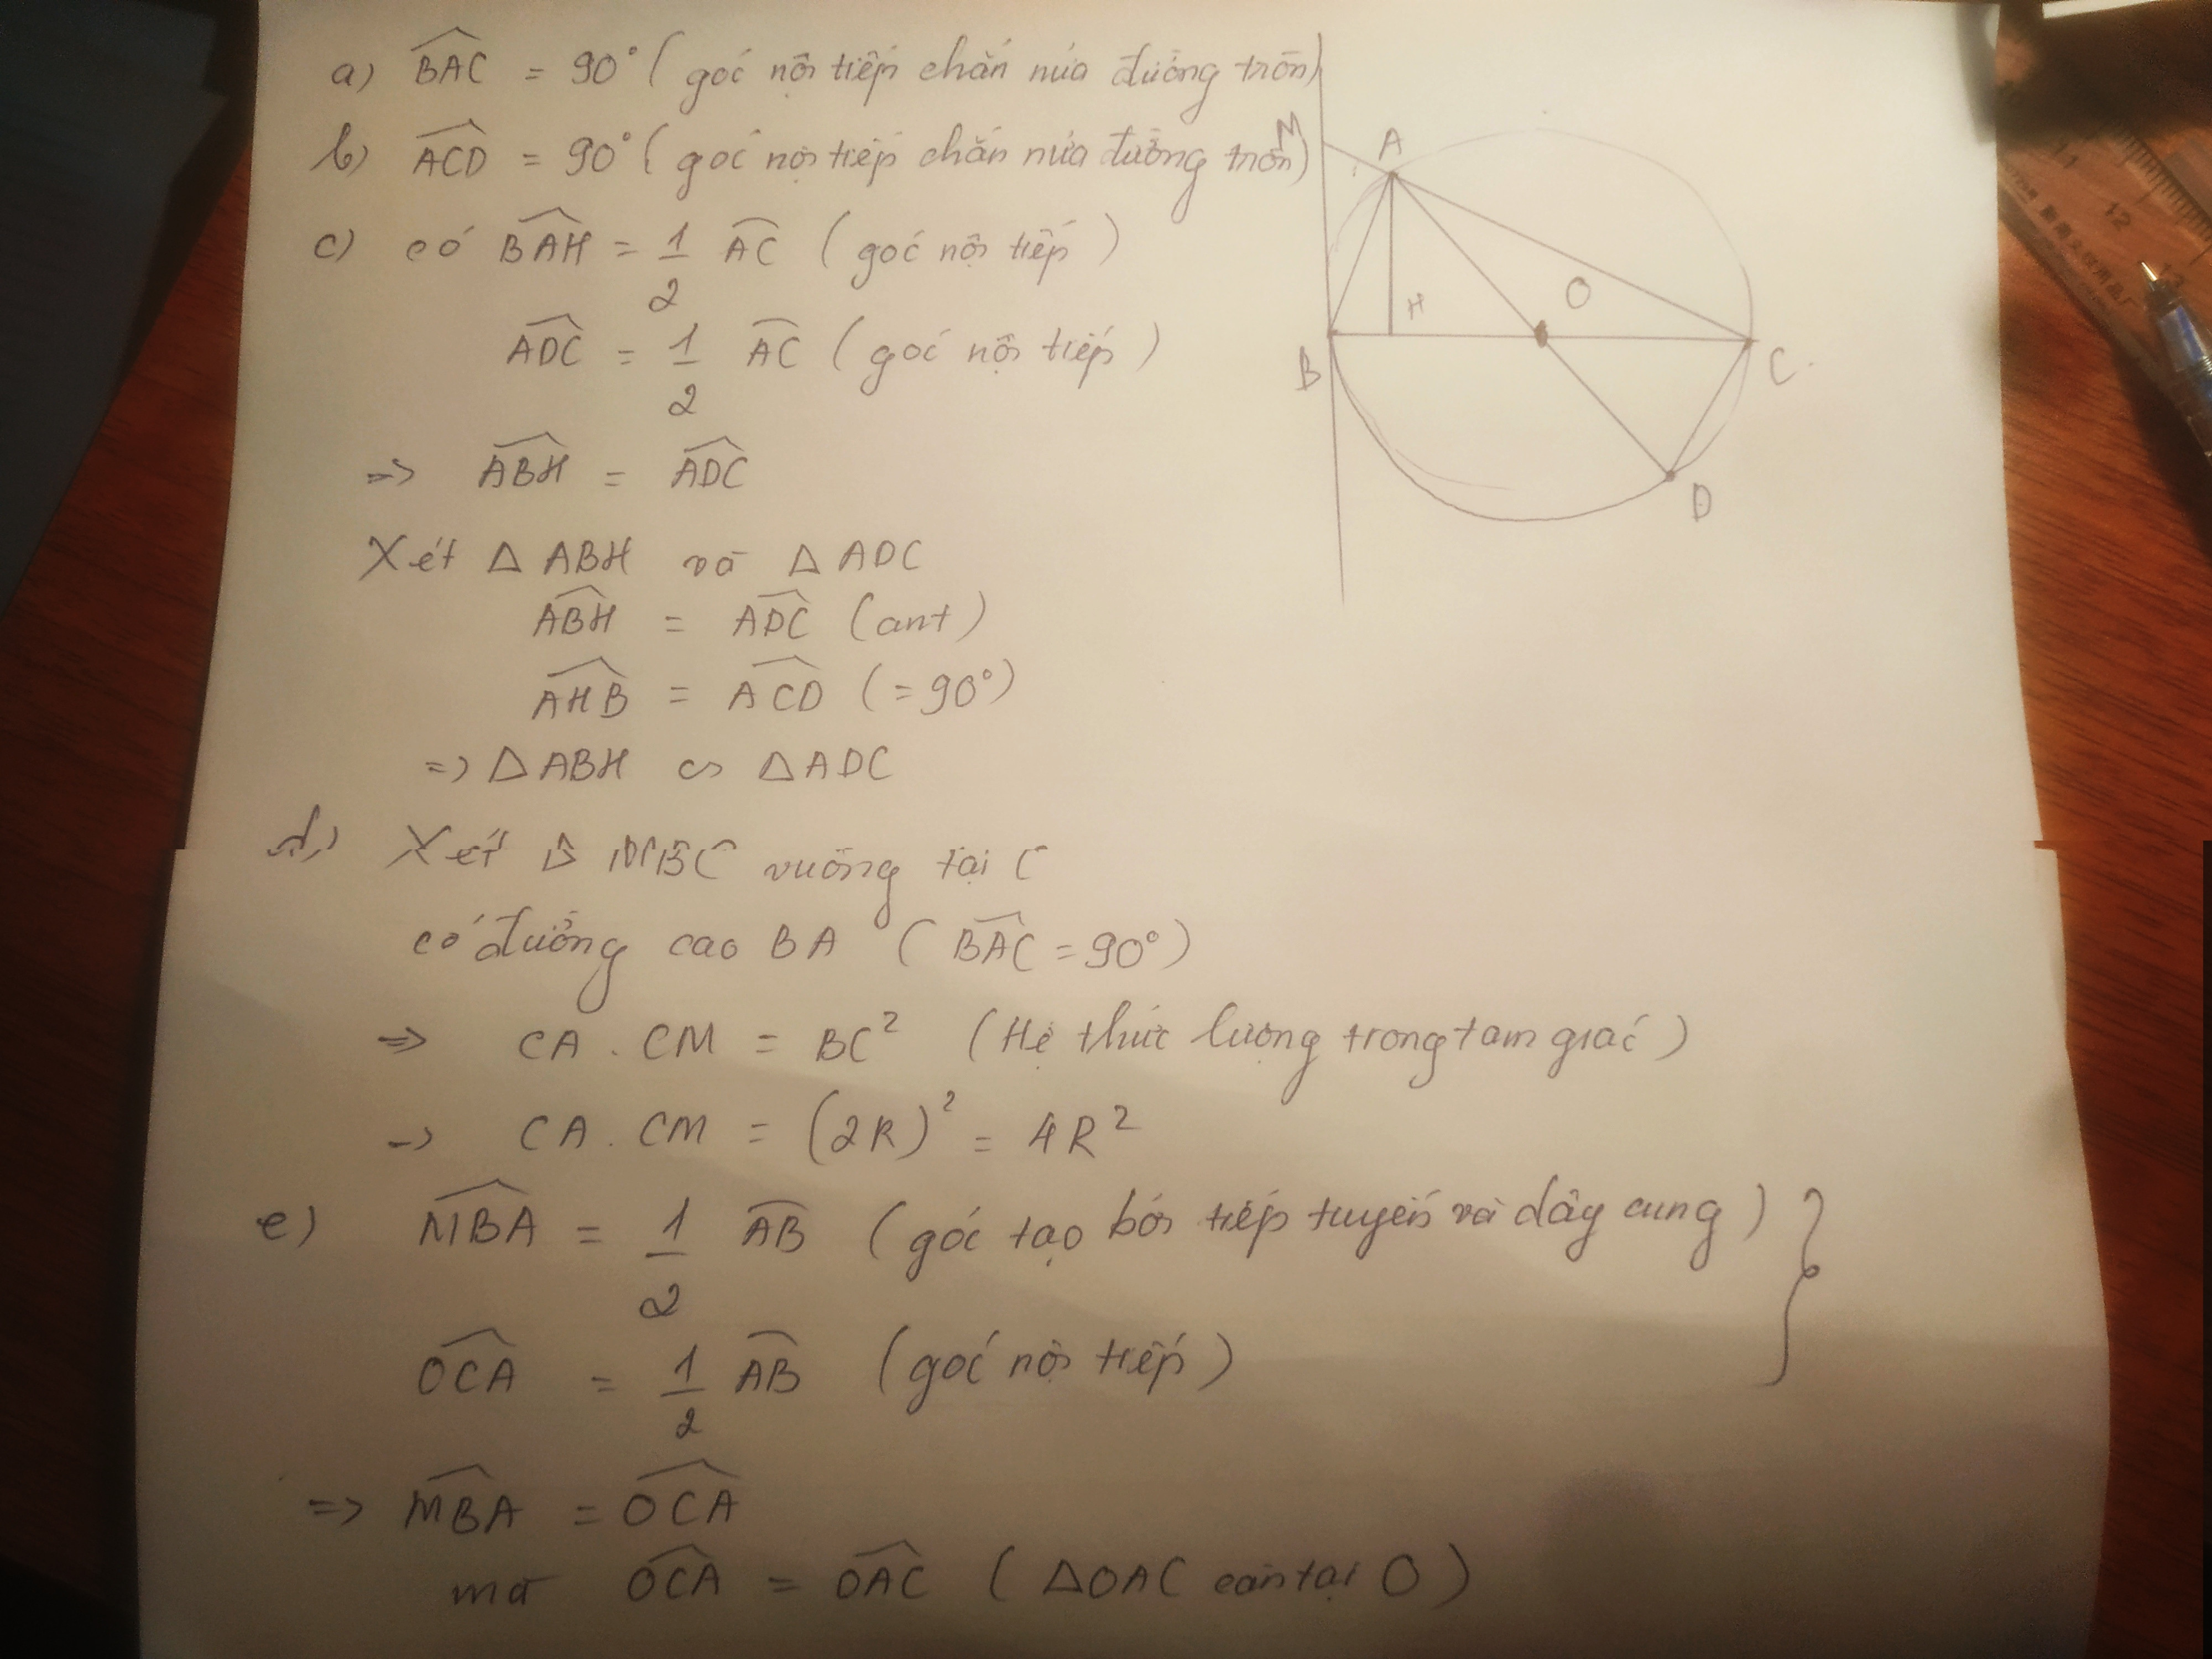 a) BAC = 90° ( góc nội tiếp chắn nửa đường tròn)
b) ACD = 90° ( góc nội tiếp chắn nửa đường tròn)
c) có BAH = 1/2 AC ( góc nội tiếp )
ADC = 1/2 AC ( góc nội tiếp )
=> ABH = ADC
Xét Δ ABH và Δ ADC
ABH = ADC (cmt)
AHB = ACD (=90°)
=> Δ ABH ∽ Δ ADC
d) Xét Δ MBC vuông tại C
có đường cao BA ( BAC = 90°)
=> CA . CM = BC² (Hệ thức lượng trong tam giác )
-> CA . CM = (2R)² = 4R²
e) MBA = 1/2 AB ( góc tạo bởi tiếp tuyến và dây cung ) }
OCA = 1/2 AB ( góc nội tiếp )
=> MBA = OCA
mà OCA = OAC ( ΔOAC cân tại O )
M
A
O
H
B
C
D
12
13